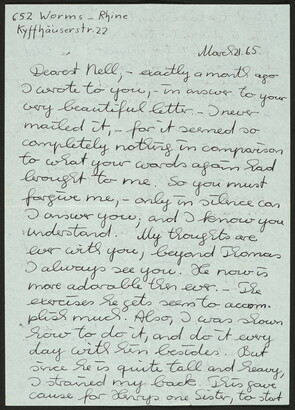 652 Worms - Rhine
Kyffhäuserstr. 22
March 21. 65.
Dearest Nell, - exactly a month ago
I wrote to you, - in answer to your
very beautiful letter. - I never
mailed it, - for it seemed so
completely nothing in comparison
to what your words again had
brought to me. So you must
forgive me, - only in silence can
I answer you, and I know you
understand. My thoughts are
ever with you, beyond Thomas
I always see you. He now is
more adorable then ever. - The
exercises he gets seem to accom-
plish much. Also, I was shown
how to do it, and do it every
day with him besides. But
since he is quite tall and heavy,
I strained my back. This gave
cause for one Sister, to start